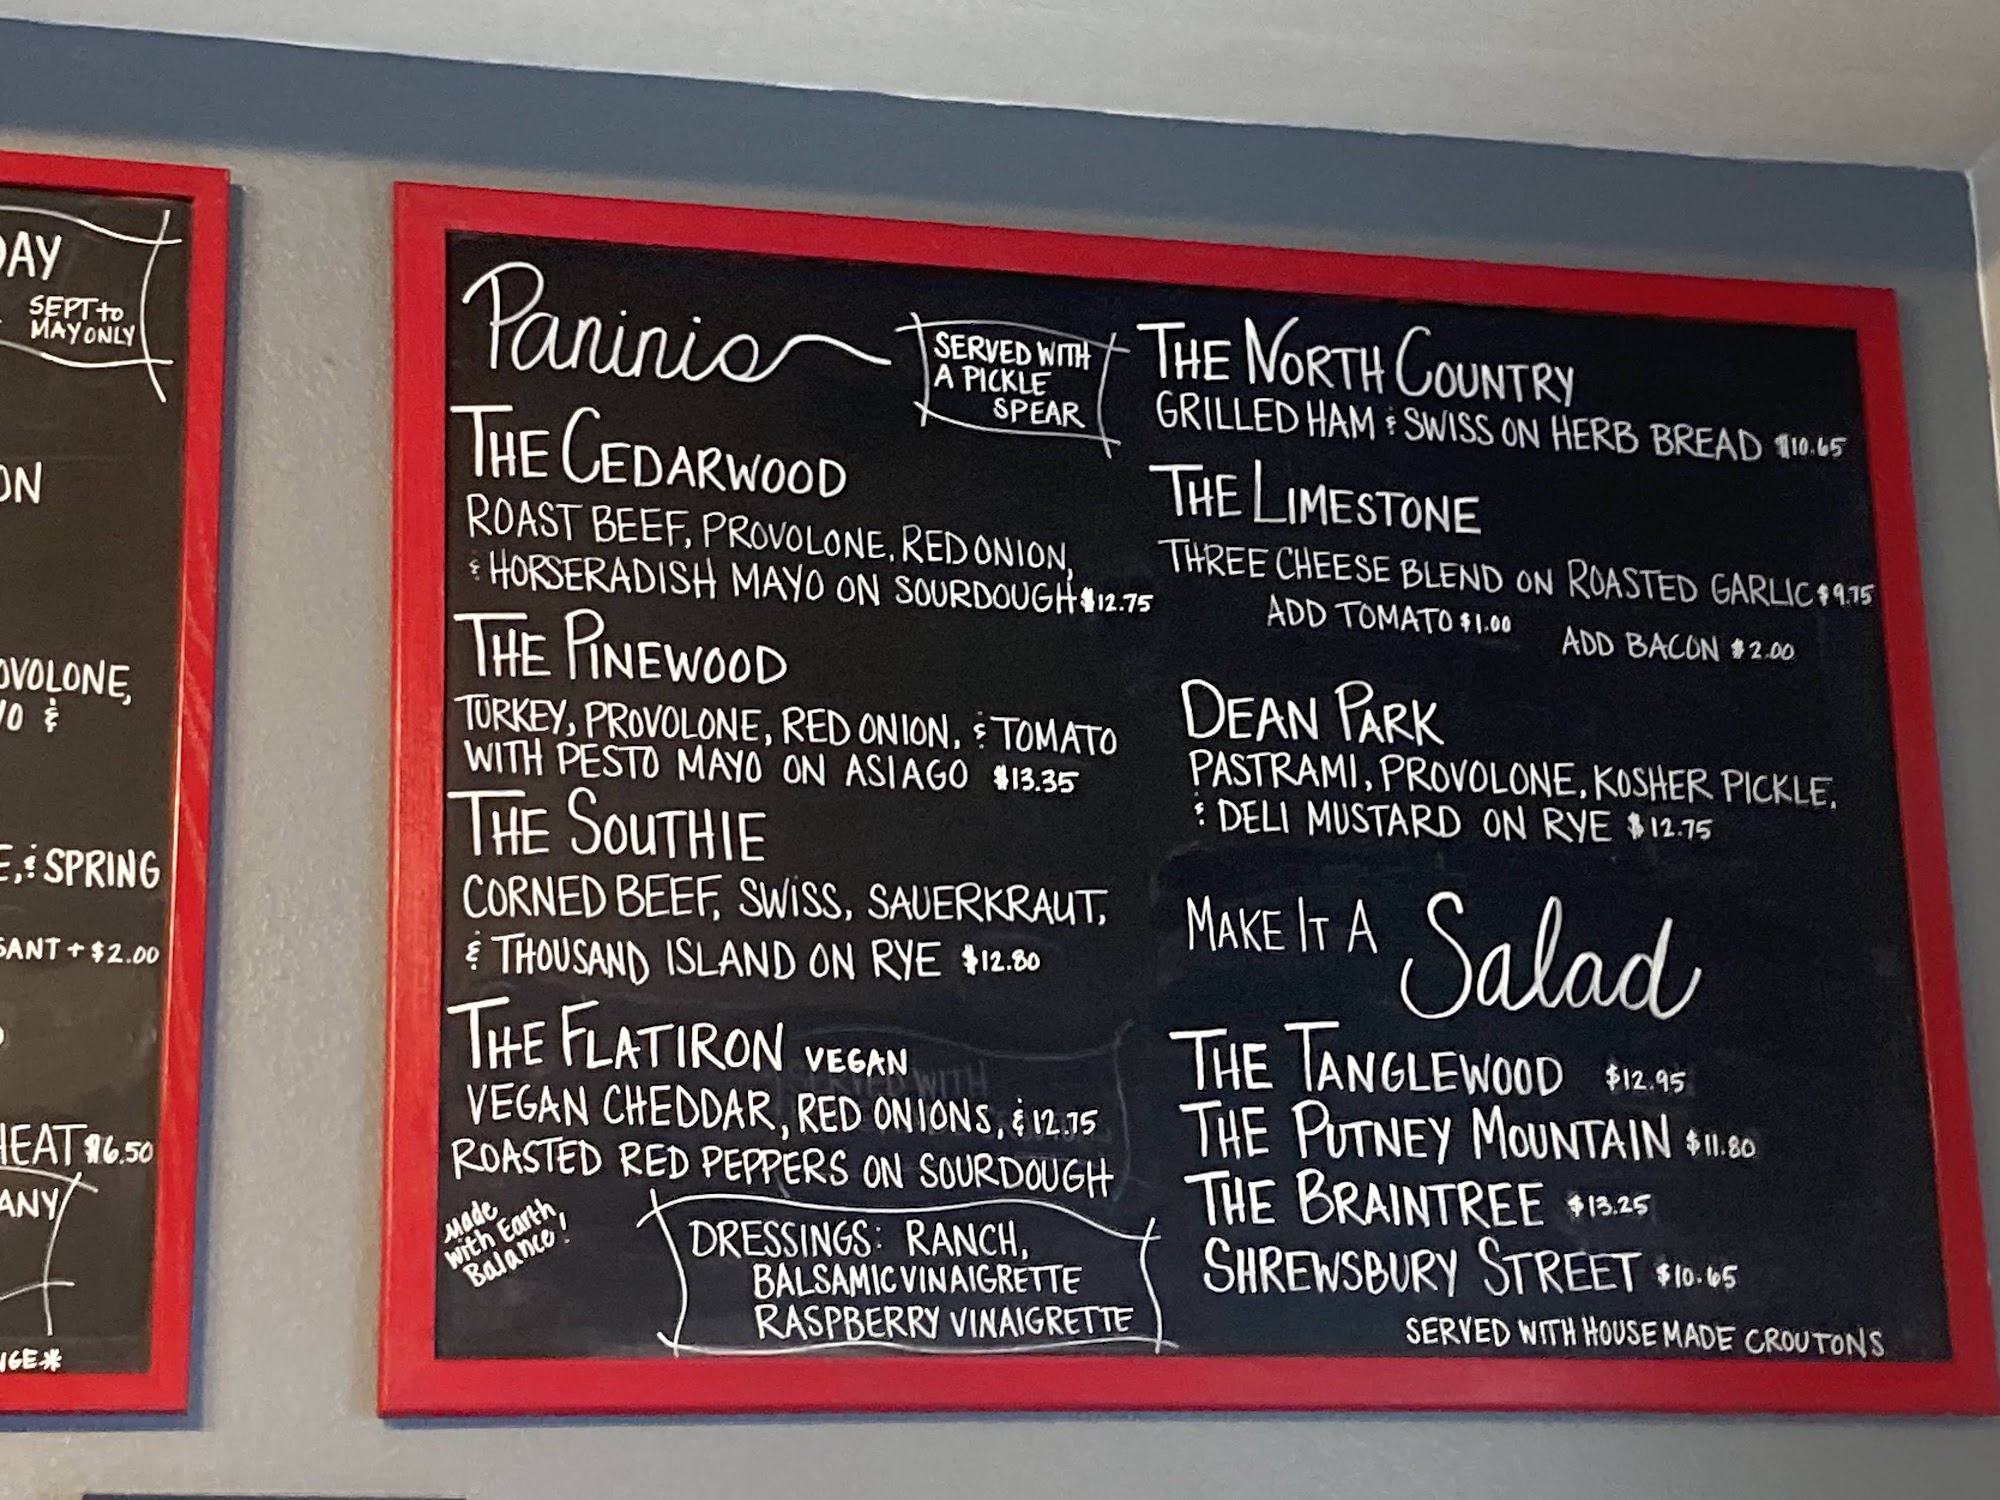 SEPT to
MAY ONLY
& SPRING
+ $2.00
$6.50
Paninis
SERVED WITH
A PICKLE
SPEAR
THE CEDARWOOD
ROAST BEEF, PROVOLONE, RED ONION,
& HORSERADISH MAYO ON SOURDOUGH $12.75
THE PINEWOOD
TURKEY, PROVOLONE, RED ONION, & TOMATO
WITH PESTO MAYO ON ASIAGO $13.35
THE SOUTHIE
CORNED BEEF, SWISS, SAUERKRAUT,
& THOUSAND ISLAND ON RYE $12.80
THE FLATIRON VEGAN
VEGAN CHEDDAR, RED ONIONS, & 12.75
ROASTED RED PEPPERS ON SOURDOUGH
Made
with Earth
Balance!
DRESSINGS: RANCH,
BALSAMIC VINAIGRETTE
RASPBERRY VINAIGRETTE
THE NORTH COUNTRY
GRILLED HAM & SWISS ON HERB BREAD $10.65
THE LIMESTONE
THREE CHEESE BLEND ON ROASTED GARLIC $9.75
ADD TOMATO $1.00
ADD BACON $2.00
DEAN PARK
PASTRAMI, PROVOLONE, KOSHER PICKLE,
& DELI MUSTARD ON RYE $12.75
MAKE IT A Salad
THE TANGLEWOOD $12.95
THE PUTNEY MOUNTAIN $11.80
THE BRAINTREE $13.25
SHREWSBURY STREET $10.65
SERVED WITH HOUSE MADE CROUTONS